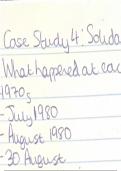 Case Study 4: Solida
What happened at eac
1970s
- July 1980
- August 1980
- 30 August